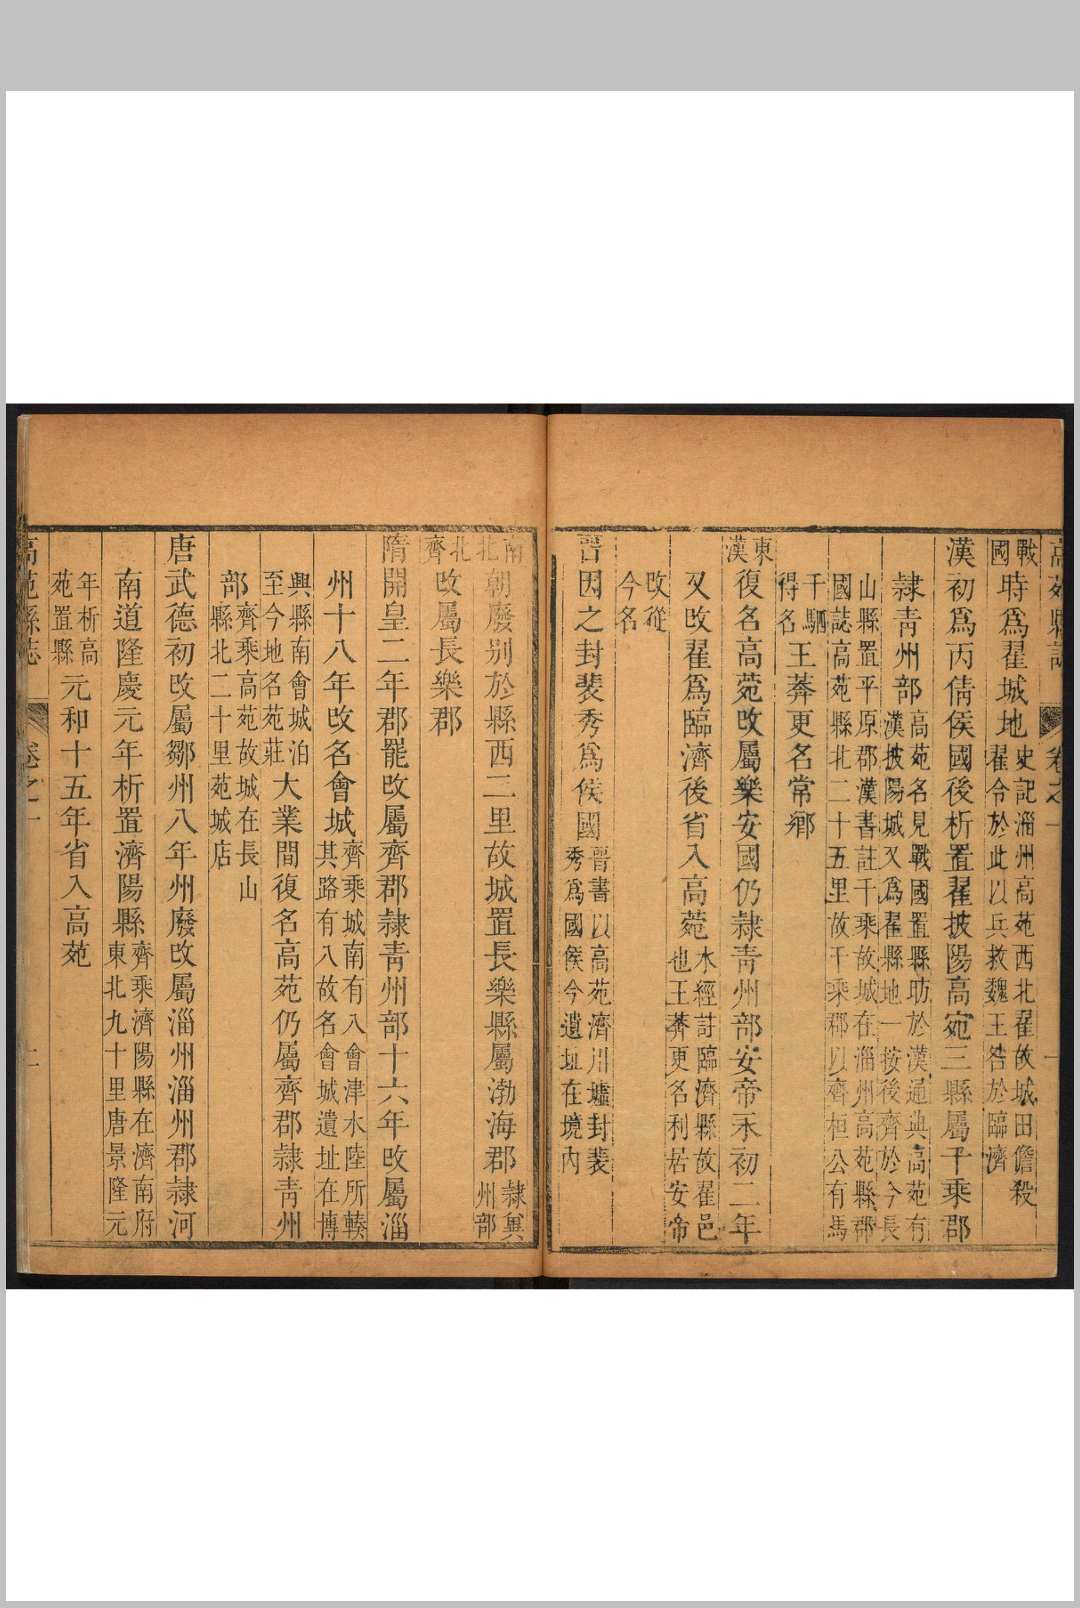 高苑縣誌 卷之一
戰國時爲翟城地史記淄州高苑西北翟故城田儋殺翟令於此以兵救魏王咎於臨濟
漢初爲丙倩侯國後析置翟披陽高宛三縣屬千乘郡
隸青州部高苑名見戰國置縣昉於漢通典高苑有漢披陽城又爲翟縣地一按後齊於今長
山縣置平原郡漢書註千乘故城在淄州高苑縣郡國誌高苑縣北二十五里故千乘郡以齊桓公有馬
千駟得名王莽更名常鄉
東漢復名高苑改屬樂安國仍隸青州部安帝永初二年
又改翟爲臨濟後省入高苑水經註臨濟縣故翟邑也王莽更名利居安帝
改從今名
晉因之封裴秀爲侯國晉書以高苑濟川墟封裴秀爲國侯今遺址在境內
南北朝廢別於縣西二里故城置長樂縣屬渤海郡隸冀州部
北齊改屬長樂郡
隋開皇二年郡罷改屬齊郡隸青州部十六年改屬淄
州十八年改名會城齊乘城南有入會津水陸所轃其路有八故名會城遺址在博
興縣南會城泊至今地名苑莊大業間復名高苑仍屬齊郡隸青州
部齊乘高苑故城在長山縣北二十里苑城店
唐武德初改屬鄒州八年州廢改屬淄州淄州郡隸河
南道隆慶元年析置濟陽縣齊乘濟陽縣在濟南府東北九十里唐景隆元
年析高苑置縣元和十五年省入高苑
高苑縣誌 卷之一 二